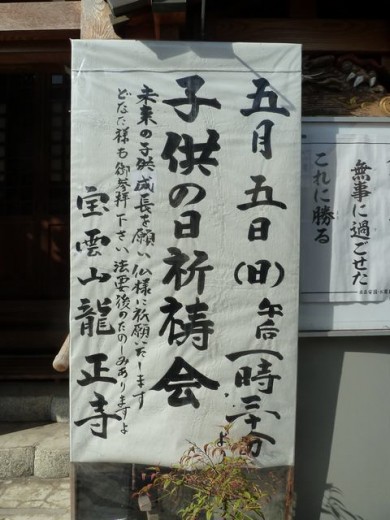 無事に過ごせた
これに勝る
五月五日(日)午后一時三十分より
子供の日祈祷会
未来の子供成長を願い仏様に祈願いたします
どなた様も御参拝下さい法要後のたのしみありますよ
宝雲山龍正寺